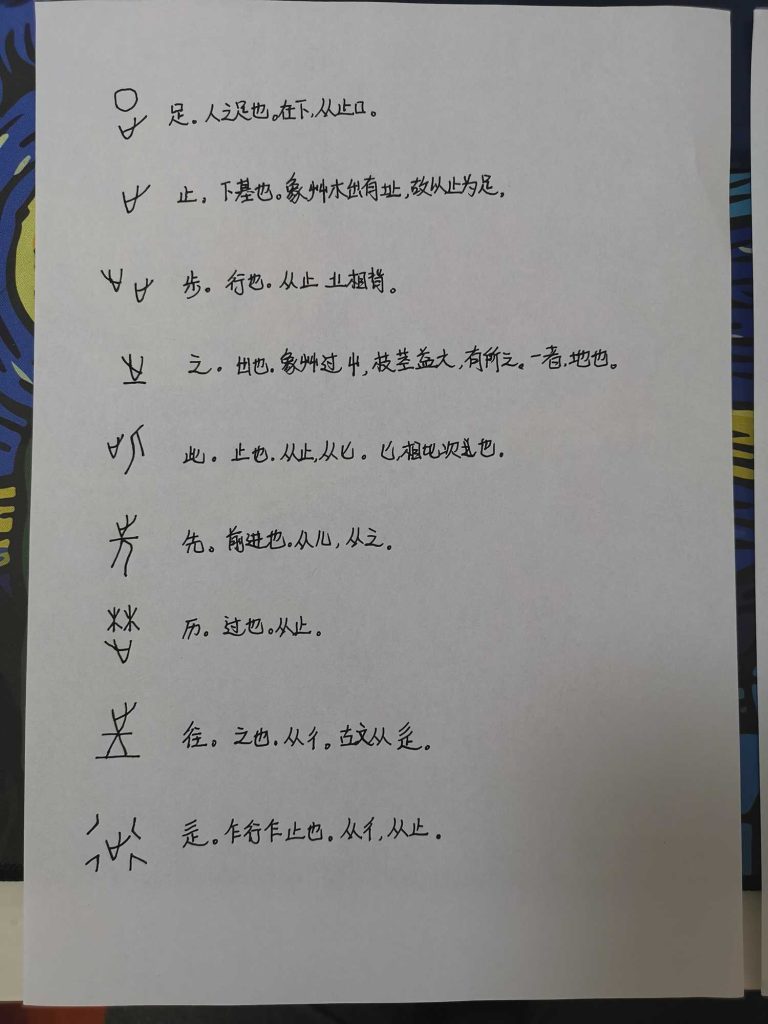 足。人之足也。在下,从止口。
止。下基也。象艸木出有址,故以止为足。
步。行也.从止 𣥂相背。
之。出也.象艸过屮,枝茎益大,有所之。一者.地也。
此。止也.从止,从匕。匕,相比次也。
先。前进也.从儿,从之。
历。过也。从止。
往。之也.从彳。古文从辵。
辵。乍行乍止也。从彳,从止。